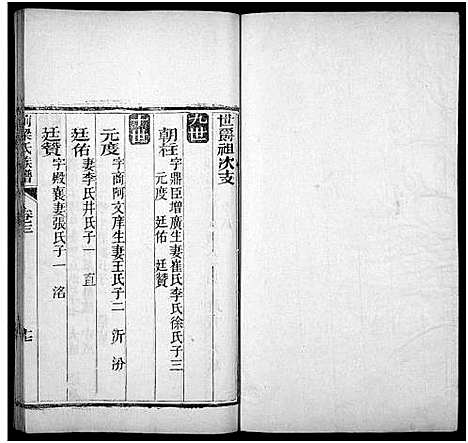 世爵祖次支
九世
朝柱字鼎臣增廣生妻崔氏李氏徐氏子三
元度 廷佑 廷贊
十世
元度字商阿文庠生妻王氏子二 沂 汾
廷佑妻李氏井氏子一 直
廷贊字殿襄妻張氏子一 洺
梁氏族譜 卷三 十七